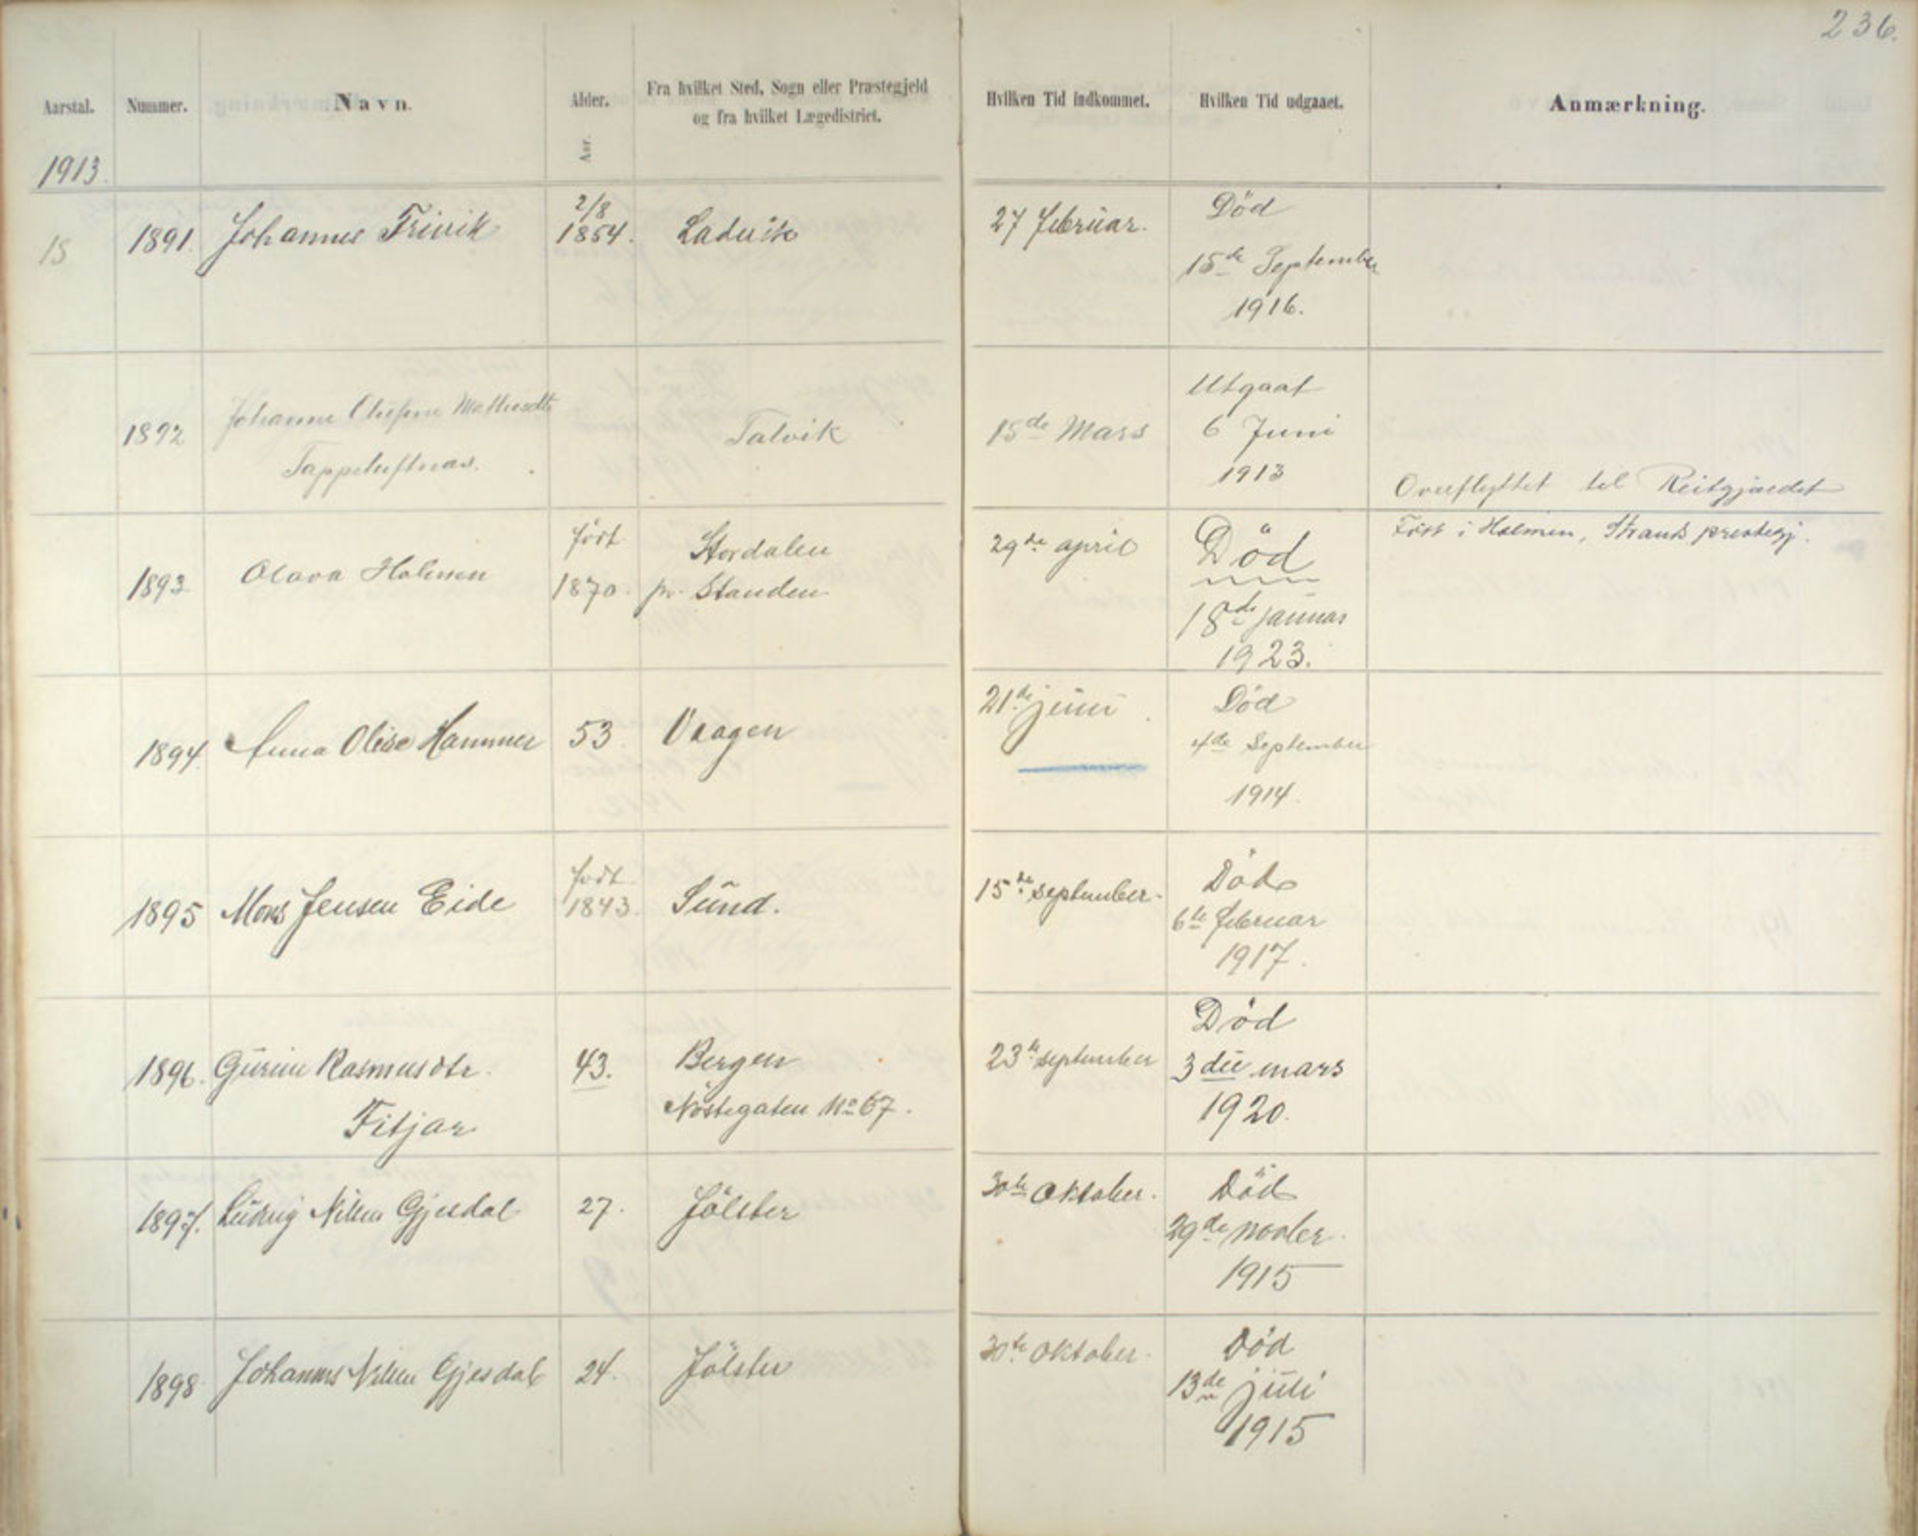 236.
Aarstal. Nummer. Navn. Alder. Fra hvilket Sted, Sogn eller Præstegjeld Hvilken Tid indkommet. Hvilken Tid udgaaet. Anmærkning.
og fra hvilket Lægedistrict.
Aar.
1913.
2/8 Död
1891. Johannes 1854. Ladvik 27 februar.
15de September
1916.
Utgaat
Johanne
1892 Talvik 15de Mars 6 Juni
1913
Overflyttet til Reitgjærdet
født Stordalen 29de april Död Født i Holmen, Strands prestegj.
1893 Olava Holmen 1870. pr. Standen
18de januar
1923.
21de juni Död
1894. Anna Olise Hammer 53 Vaagen
4de September
1914.
født Död
1895 Mons Jensen Eide 1843. Sund. 15de september.
6te februar
1917.
Död
1896. Gurine Rasmusdtr. 43. Bergen 23de september 3die mars
Fitjar Nöstegaten No 67. 1920.
1897. Ludvig Nilsen Gjesdal 27. Jölster 30te Oktober. Död
29de novbr.
1915
1898 Johannes Nilsen Gjesdal 24. Jölster 30te oktober. Död
13de juli
1915